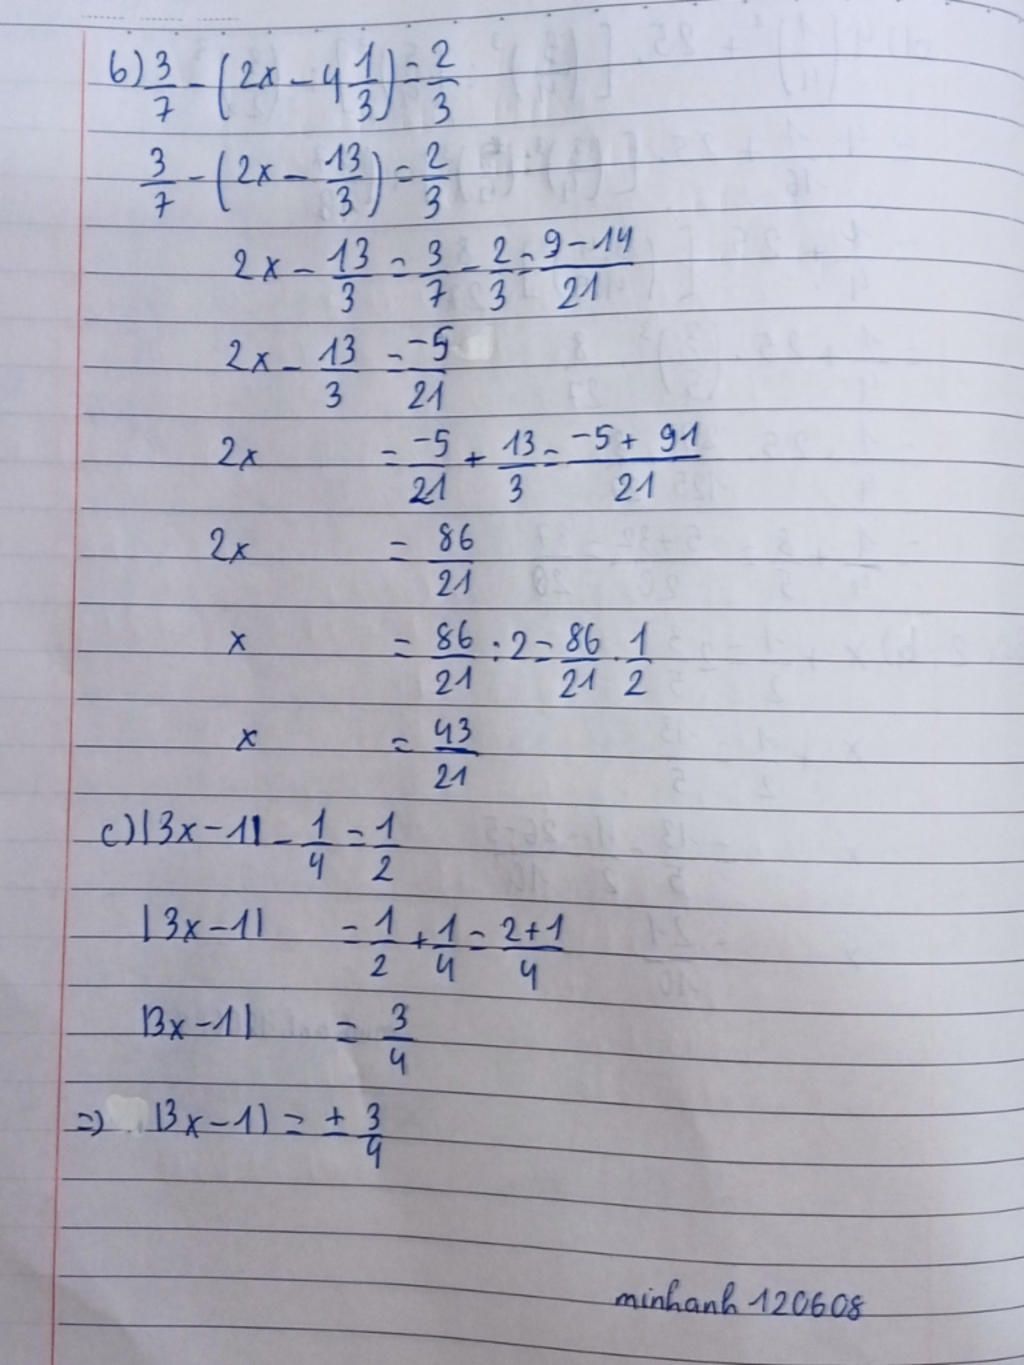 b) 3/7 - (2x - 4 1/3) = 2/3
3/7 - (2x - 13/3) = 2/3
2x - 13/3 = 3/7 - 2/3 = 9-14/21
2x - 13/3 = -5/21
2x = -5/21 + 13/3 = -5+91/21
2x = 86/21
x = 86/21 : 2 = 86/21 . 1/2
x = 43/21
c) |3x-1| - 1/4 = 1/2
|3x-1| = 1/2 + 1/4 = 2+1/4
|3x-1| = 3/4
=) |3x-1| = ± 3/4
minhanh 120608